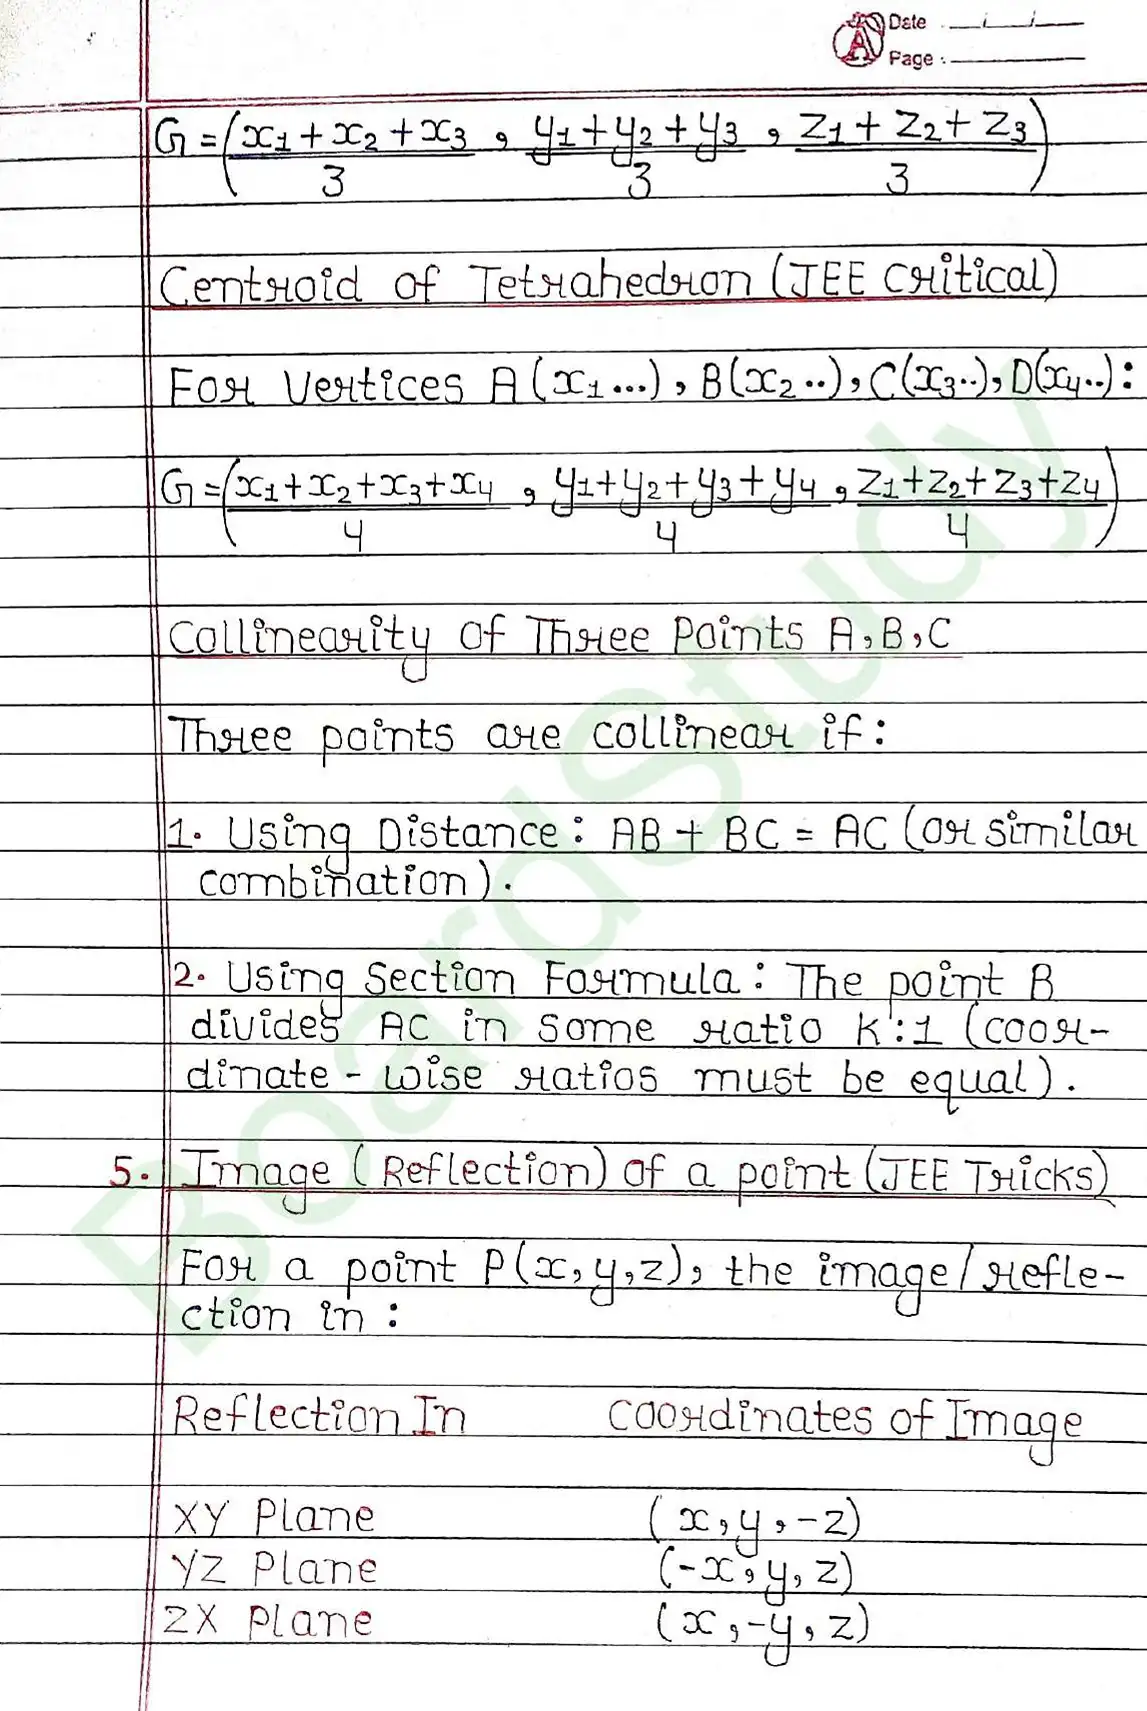 Date
Page :
G = (x₁ + x₂ + x₃ / 3 , y₁ + y₂ + y₃ / 3 , z₁ + z₂ + z₃ / 3)
Centroid of Tetrahedron (JEE Critical)
For Vertices A(x₁...), B(x₂..), C(x₃..), D(x₄..):
G = (x₁ + x₂ + x₃ + x₄ / 4 , y₁ + y₂ + y₃ + y₄ / 4 , z₁ + z₂ + z₃ + z₄ / 4)
Collinearity of Three Points A, B, C
Three points are collinear if:
1. Using Distance: AB + BC = AC (or similar
combination).
2. Using Section Formula: The point B
divides AC in some ratio K:1 (coor-
dinate - wise ratios must be equal).
5. Image (Reflection) of a point (JEE Tricks)
For a point P(x, y, z), the image/refle-
ction in :
Reflection In Coordinates of Image
XY Plane (x, y, -z)
YZ Plane (-x, y, z)
ZX Plane (x, -y, z)
BoardStudy